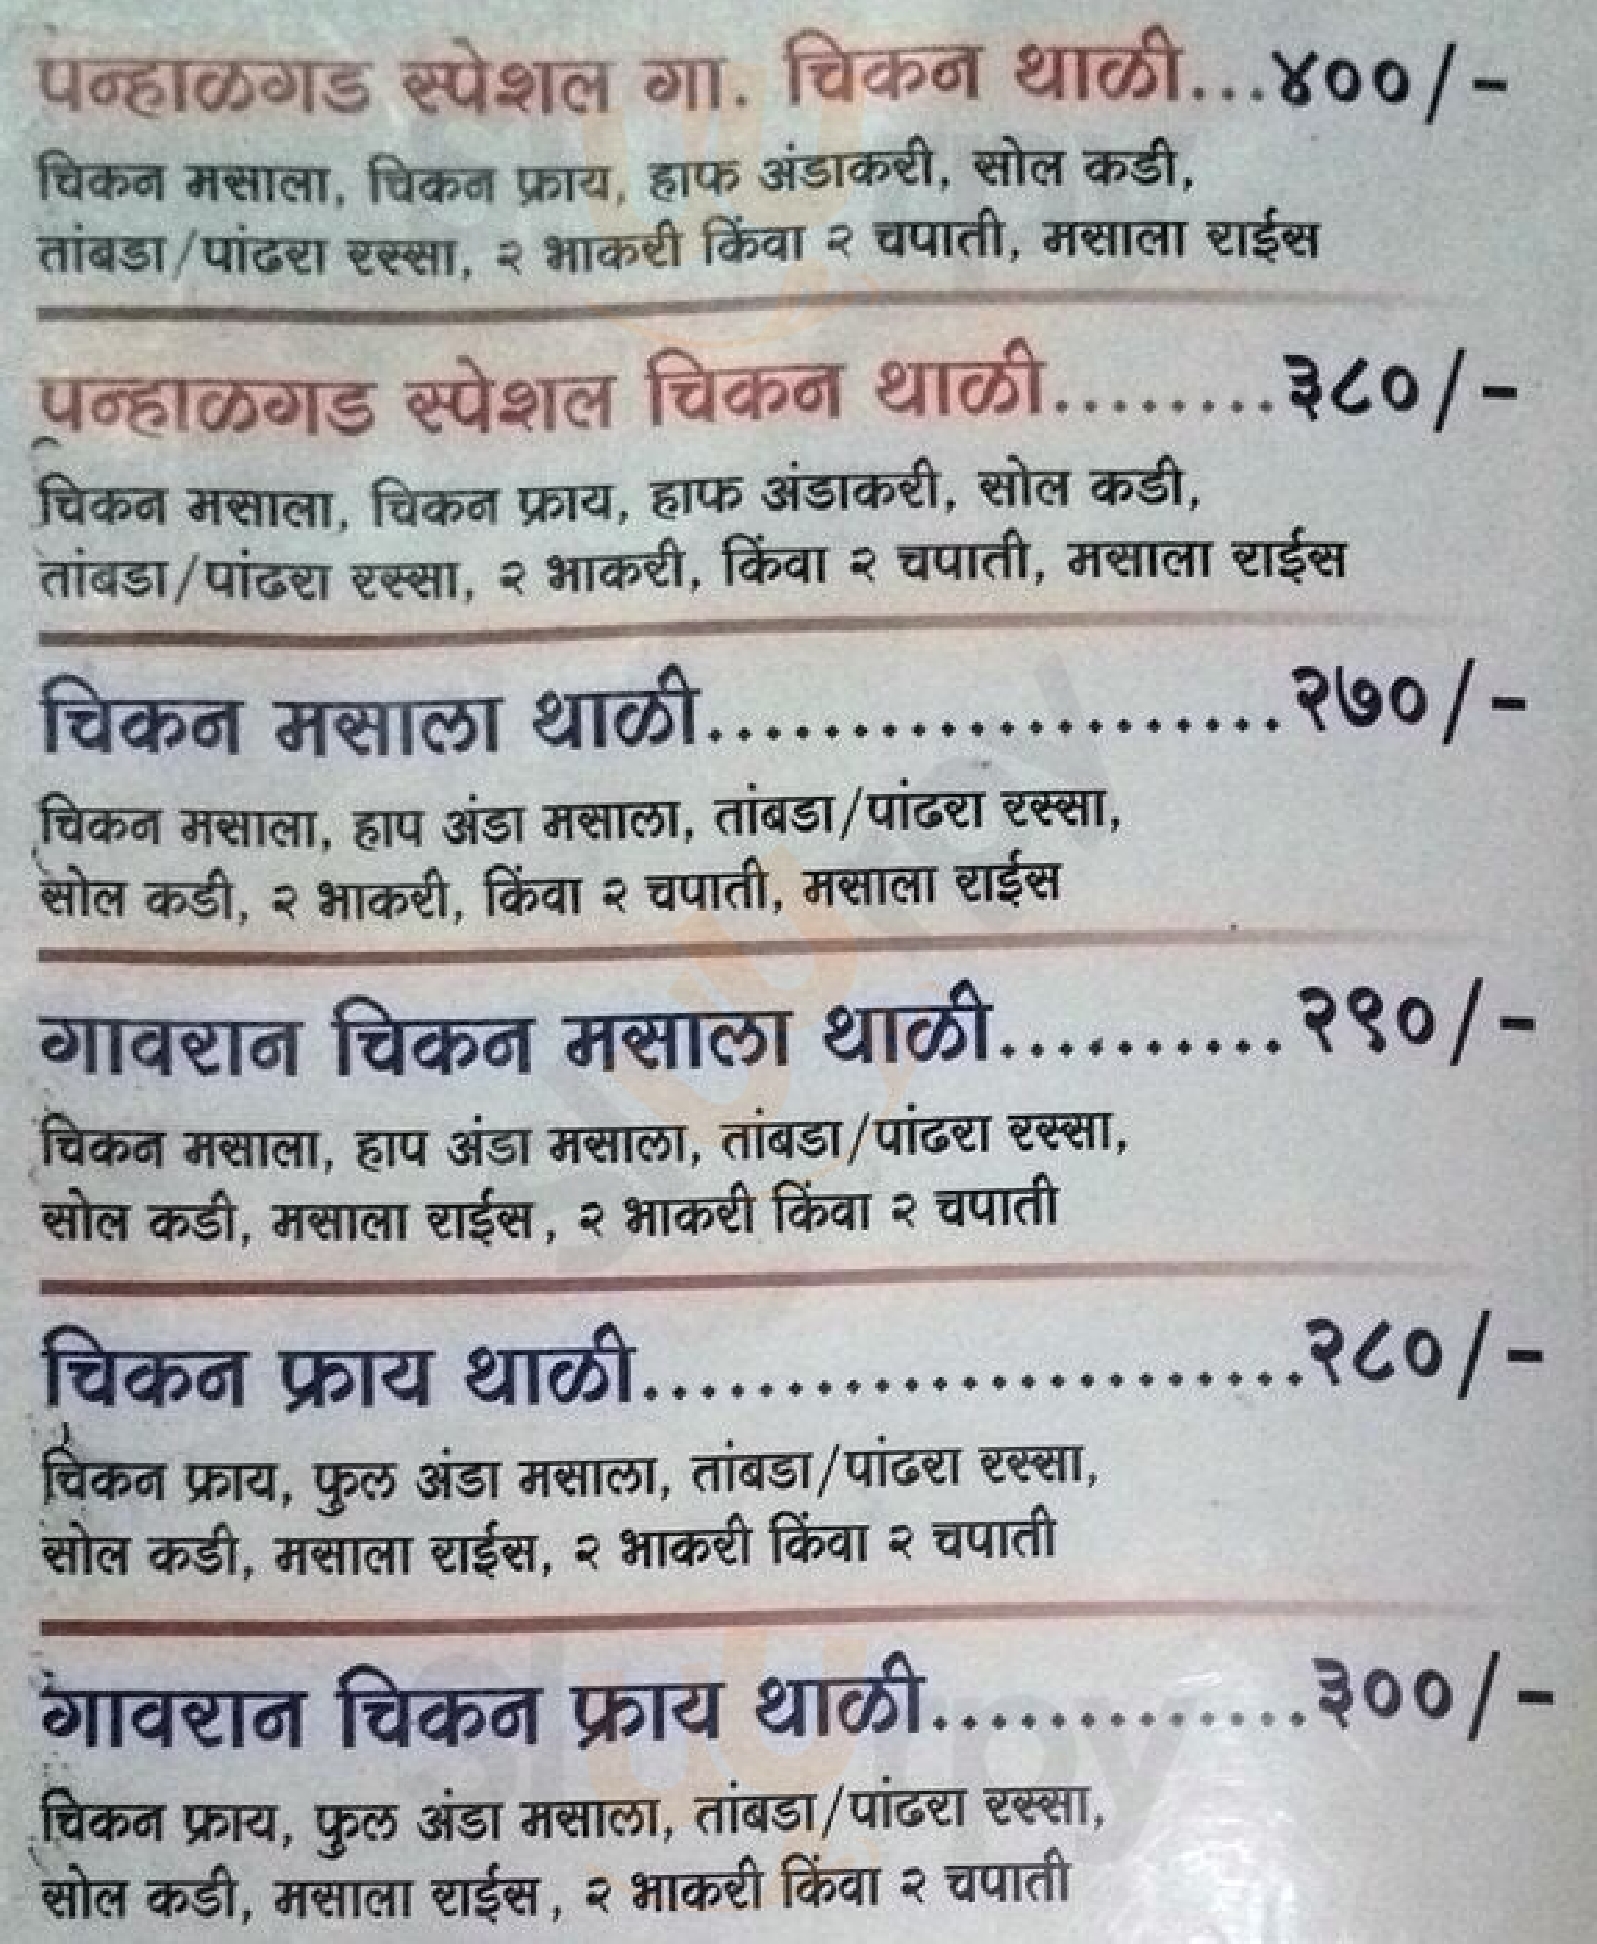 पन्हाळगड स्पेशल गा. चिकन थाळी...४००/-
चिकन मसाला, चिकन फ्राय, हाफ अंडाकरी, सोल कडी,
तांबडा/पांढरा रस्सा, २ भाकरी किंवा २ चपाती, मसाला राईस
पन्हाळगड स्पेशल चिकन थाळी........३८०/-
चिकन मसाला, चिकन फ्राय, हाफ अंडाकरी, सोल कडी,
तांबडा/पांढरा रस्सा, २ भाकरी, किंवा २ चपाती, मसाला राईस
चिकन मसाला थाळी....................२७०/-
चिकन मसाला, हाप अंडा मसाला, तांबडा/पांढरा रस्सा,
सोल कडी, २ भाकरी, किंवा २ चपाती, मसाला राईस
गावरान चिकन मसाला थाळी..........२९०/-
चिकन मसाला, हाप अंडा मसाला, तांबडा/पांढरा रस्सा,
सोल कडी, मसाला राईस, २ भाकरी किंवा २ चपाती
चिकन फ्राय थाळी.......................२८०/-
चिकन फ्राय, फुल अंडा मसाला, तांबडा/पांढरा रस्सा,
सोल कडी, मसाला राईस, २ भाकरी किंवा २ चपाती
गावरान चिकन फ्राय थाळी.............३००/-
चिकन फ्राय, फुल अंडा मसाला, तांबडा/पांढरा रस्सा,
सोल कडी, मसाला राईस, २ भाकरी किंवा २ चपाती